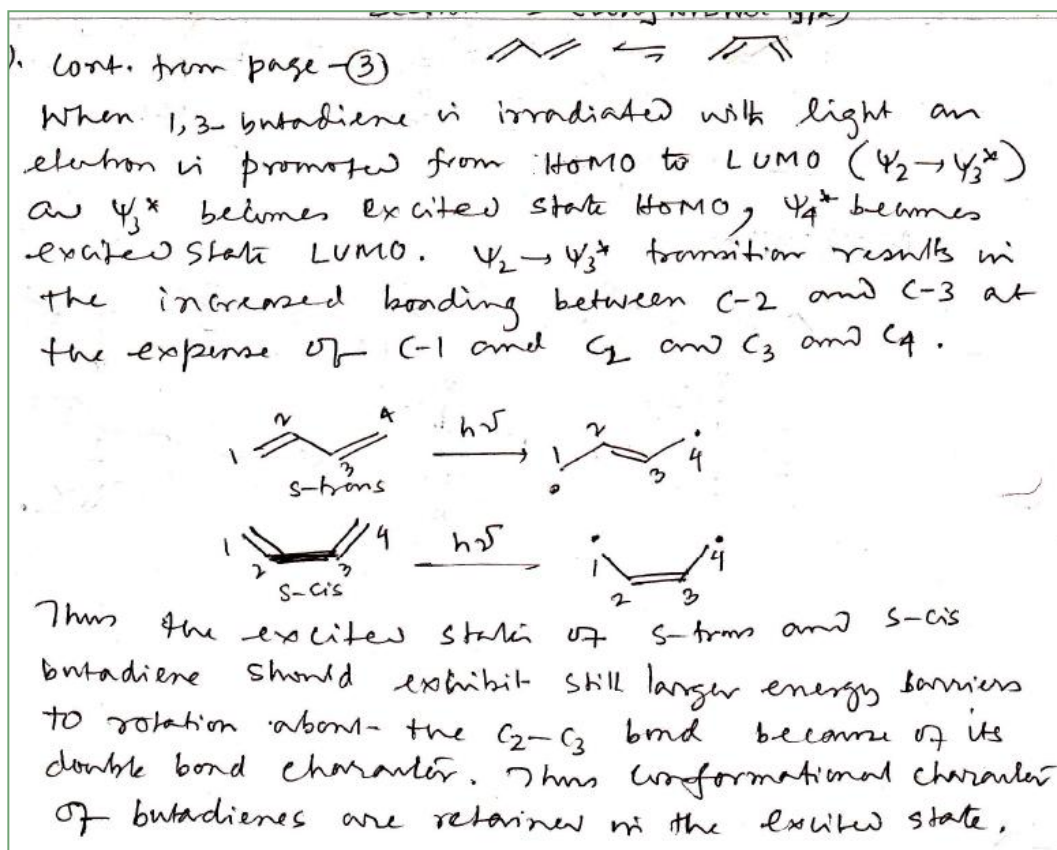 ). Cont. from page -③
When 1,3-butadiene is irradiated with light an
electron is promoted from HOMO to LUMO (Ψ2 → Ψ3*)
as Ψ3* becomes excited state HOMO, Ψ4* becomes
excited state LUMO. Ψ2 → Ψ3* transition results in
the increased bonding between C-2 and C-3 at
the expense of C-1 and C2 and C3 and C4.
1 2 3 4 hν 1 2 3 4
s-trans
1 2 3 4 hν 1 2 3 4
s-cis
Thus the excited states of s-trans and s-cis
butadiene should exhibit still larger energy barriers
to rotation about the C2-C3 bond because of its
double bond character. Thus conformational character
of butadienes are retained in the excited state.